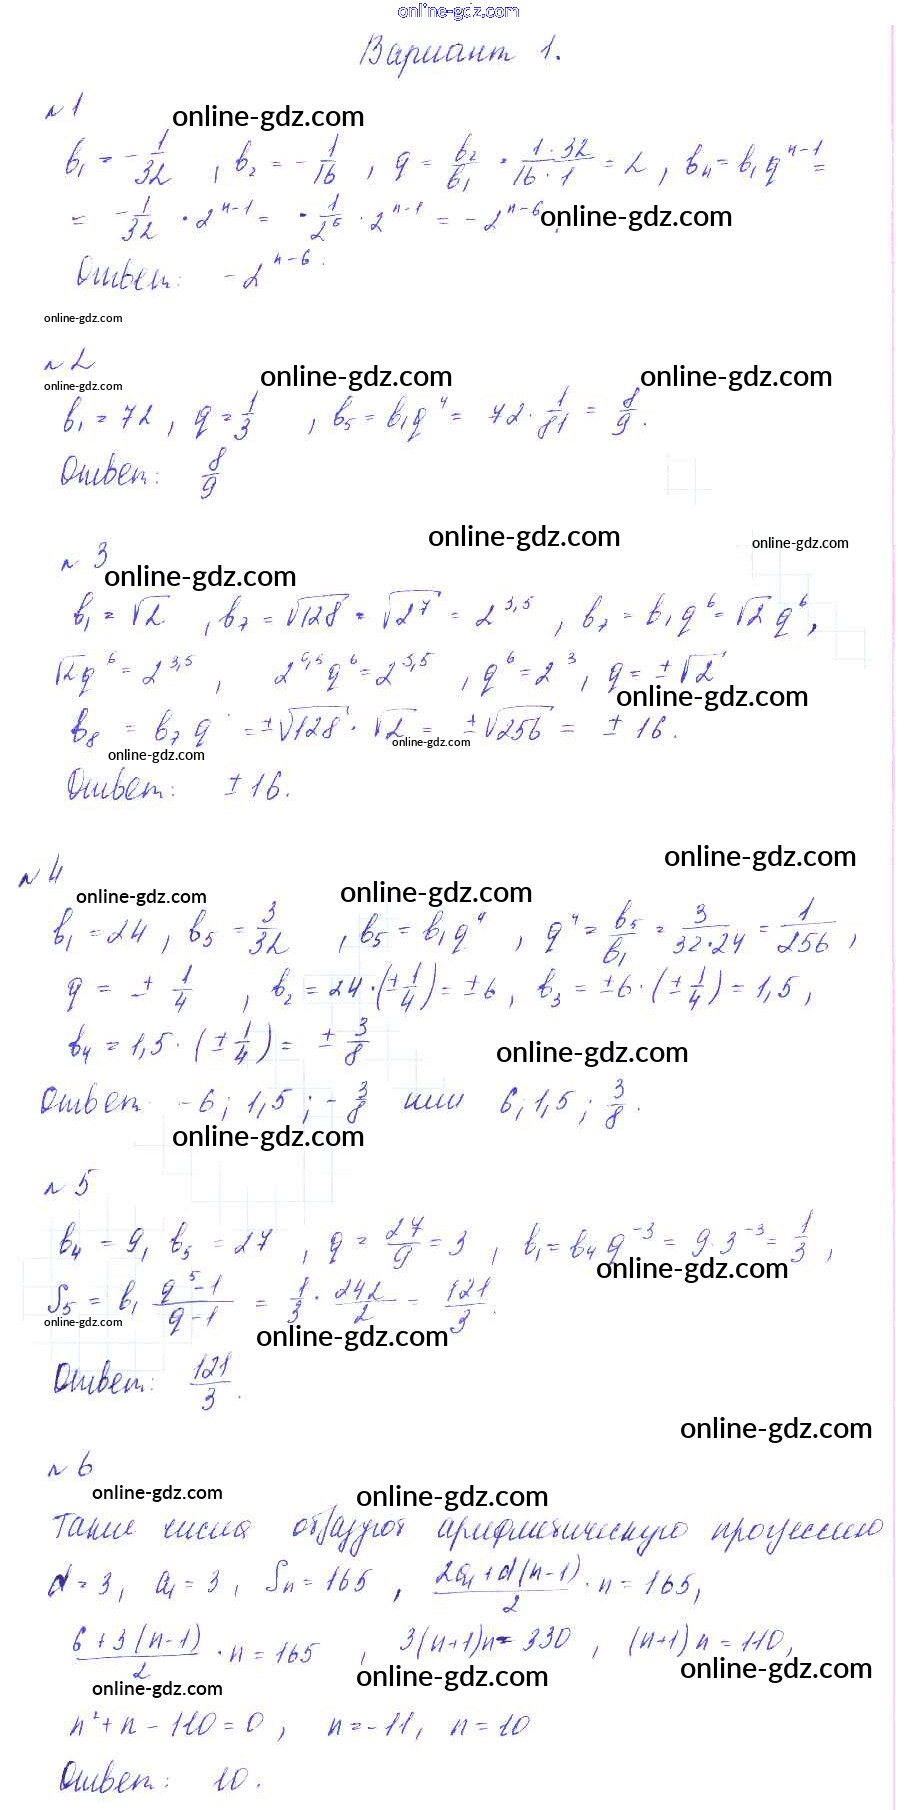 online-gdz.com
Вариант 1.
№1
online-gdz.com
b₁ = -1/32, b₂ = -1/16, q = b₂/b₁ = (1·32)/(16·1) = 2, bₙ = b₁qⁿ⁻¹ =
= -1/32 · 2ⁿ⁻¹ = -1/2⁶ · 2ⁿ⁻¹ = -2ⁿ⁻⁶. online-gdz.com
Ответ: -2ⁿ⁻⁶.
online-gdz.com
№2
online-gdz.com online-gdz.com online-gdz.com
b₁ = 72, q = 1/3, b₅ = b₁q⁴ = 72 · 1/81 = 8/9.
Ответ: 8/9
online-gdz.com online-gdz.com
№3
online-gdz.com
b₁ = √2, b₇ = √128 = √2⁷ = 2^3,5, b₇ = b₁q⁶ = √2 q⁶,
√2q⁶ = 2^3,5, 2^0,5 q⁶ = 2^3,5, q⁶ = 2³, q = ±√2
online-gdz.com
b₈ = b₇q = ±√128 · √2 = ±√256 = ±16.
online-gdz.com online-gdz.com
Ответ: ±16.
online-gdz.com
№4
online-gdz.com online-gdz.com
b₁ = 24, b₅ = 3/32, b₅ = b₁q⁴, q⁴ = b₅/b₁ = 3/(32·24) = 1/256,
q = ±1/4, b₂ = 24·(±1/4) = ±6, b₃ = ±6·(±1/4) = 1,5,
b₄ = 1,5·(±1/4) = ±3/8 online-gdz.com
Ответ: -6; 1,5; -3/8 или 6; 1,5; 3/8.
online-gdz.com
№5
b₄ = 9, b₅ = 27, q = 27/9 = 3, b₁ = b₄q⁻³ = 9·3⁻³ = 1/3,
online-gdz.com
S₅ = b₁ (q⁵-1)/(q-1) = 1/3 · 242/2 = 121/3.
online-gdz.com online-gdz.com
Ответ: 121/3.
online-gdz.com
№6
online-gdz.com online-gdz.com
Такие числа образуют арифметическую прогрессию
d = 3, a₁ = 3, Sₙ = 165, (2a₁+d(n-1))/2 · n = 165,
(6+3(n-1))/2 · n = 165, 3(n+1)n = 330, (n+1)n = 110,
online-gdz.com online-gdz.com online-gdz.com
n²+n-110 = 0, n = -11, n = 10
Ответ: 10.